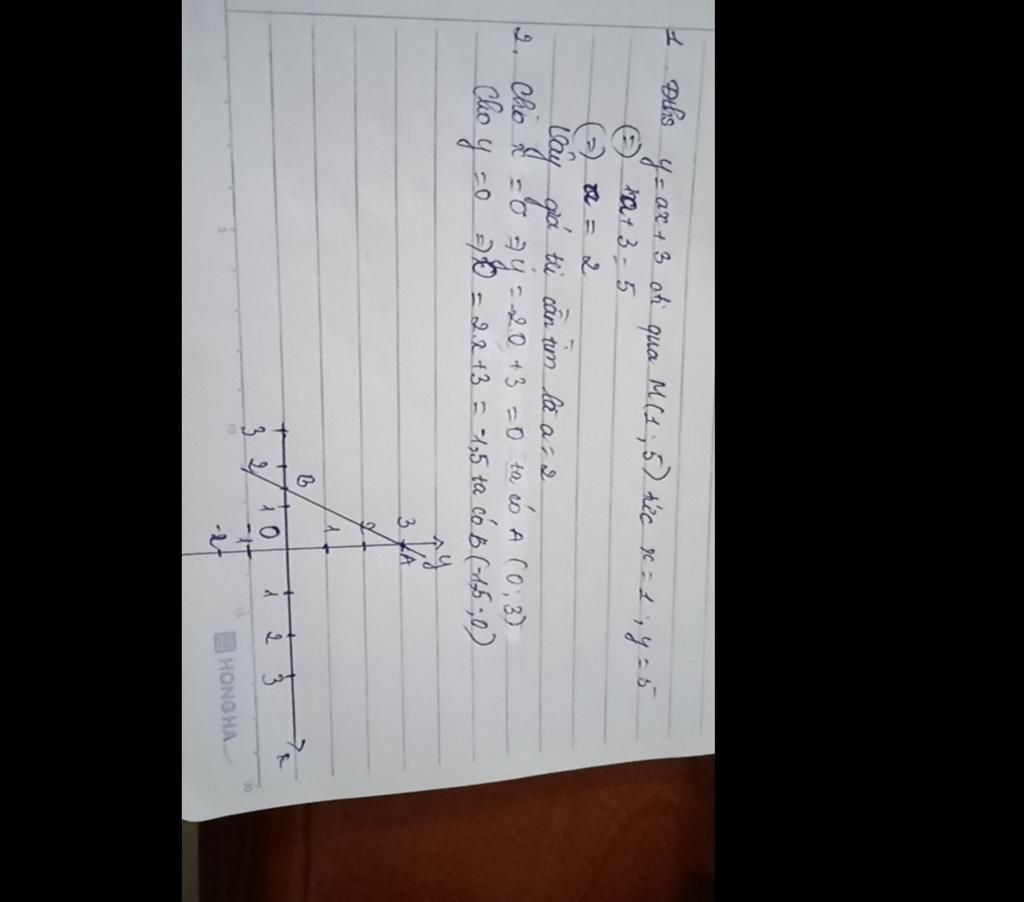 1 Đths y = ax + 3 đi qua M(1; 5) tức x = 1; y = 5
(=) a + 3 = 5
(=) a = 2
Vậy giá trị cần tìm là a = 2
2. Cho x = 0 => y = 2.0 + 3 = 0 ta có A (0; 3)
Cho y = 0 => 0 = 2.x + 3 = -1,5 ta có B (-1,5; 0)
y
3 A
2
1
B
3 2 1 0 1 2 3 x
-1
-2
HONG HA
5 10 15 20